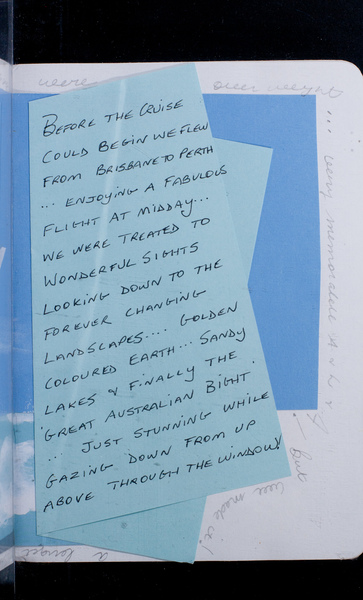 were over weight
.... very memorable
! but
we made it!
a longer
BEFORE THE CRUISE
COULD BEGIN WE FLEW
FROM BRISBANE TO PERTH
... ENJOYING A FABULOUS
FLIGHT AT MIDDAY...
WE WERE TREATED TO
WONDERFUL SIGHTS
LOOKING DOWN TO THE
FOREVER CHANGING
LANDSCAPES.... GOLDEN
COLOURED EARTH... SANDY
LAKES & FINALLY THE
'GREAT AUSTRALIAN BIGHT'
... JUST STUNNING WHILE
GAZING DOWN FROM UP
ABOVE THROUGH THE WINDOW!